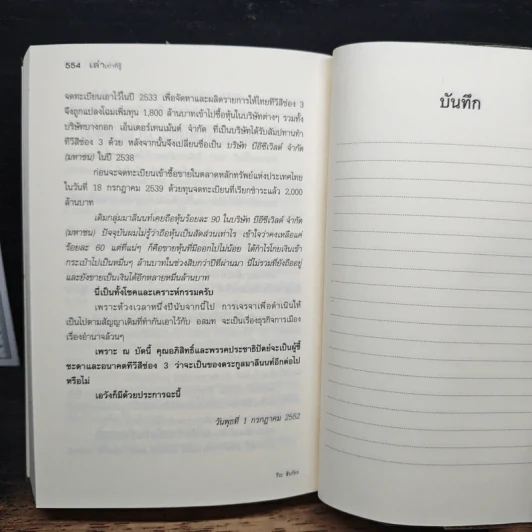 554 เล่า
จดทะเบียนเอาไว้ในปี 2533 เพื่อจัดหาและผลิตรายการให้ไทยทีวีสีช่อง 3
จึงถูกแปลงโฉมเพิ่มทุน 1,800 ล้านบาทเข้าไปซื้อหุ้นในบริษัทต่างๆ รวมทั้ง
บริษัทบางกอก เอ็นเตอร์เทนเม้นต์ จำกัด ที่เป็นบริษัทได้รับสัมปทานทำ
ทีวีสีช่อง 3 ด้วย หลังจากนั้นจึงเปลี่ยนชื่อเป็น บริษัท บีอีซีเวิลด์ จำกัด
(มหาชน) ในปี 2538
ก่อนจะจดทะเบียนเข้าซื้อขายในตลาดหลักทรัพย์แห่งประเทศไทย
ในวันที่ 18 กรกฎาคม 2539 ด้วยทุนจดทะเบียนที่เรียกชำระแล้ว 2,000
ล้านบาท
เดิมกลุ่มมาลีนนท์เคยถือหุ้นร้อยละ 90 ในบริษัท บีอีซีเวิลด์ จำกัด
(มหาชน) ปัจจุบันผมไม่รู้ว่าถือหุ้นเป็นสัดส่วนเท่าไร เข้าใจว่าคงเหลือแค่
ร้อยละ 60 แต่ที่แน่ๆ ก็คือขายหุ้นที่มีออกไปไม่น้อย ได้กำไรโกยเงินเข้า
กระเป๋าไปเป็นหมื่นๆ ล้านบาทในช่วงสิบกว่าปีที่ผ่านมา นี่ไม่รวมที่ยังถืออยู่
และยังขายเป็นเงินได้อีกหลายหมื่นล้านบาท
นี่เป็นทั้งโชคและเคราะห์กรรมครับ
เพราะห้วงเวลาหนึ่งปีนับจากนี้ไป การเจรจาเพื่อดำเนินให้
เป็นไปตามสัญญาเดิมที่ทำกันเอาไว้กับ อสมท จะเป็นเรื่องธุรกิจการเมือง
เรื่องอำนาจล้วนๆ
เพราะ ณ บัดนี้ คุณอภิสิทธิ์และพรรคประชาธิปัตย์จะเป็นผู้ชี้
ชะตาและอนาคตทีวีสีช่อง 3 ว่าจะเป็นของตระกูลมาลีนนท์อีกต่อไป
หรือไม่
เอวังก็มีด้วยประการฉะนี้
วันพุธที่ 1 กรกฎาคม 2552
บันทึก